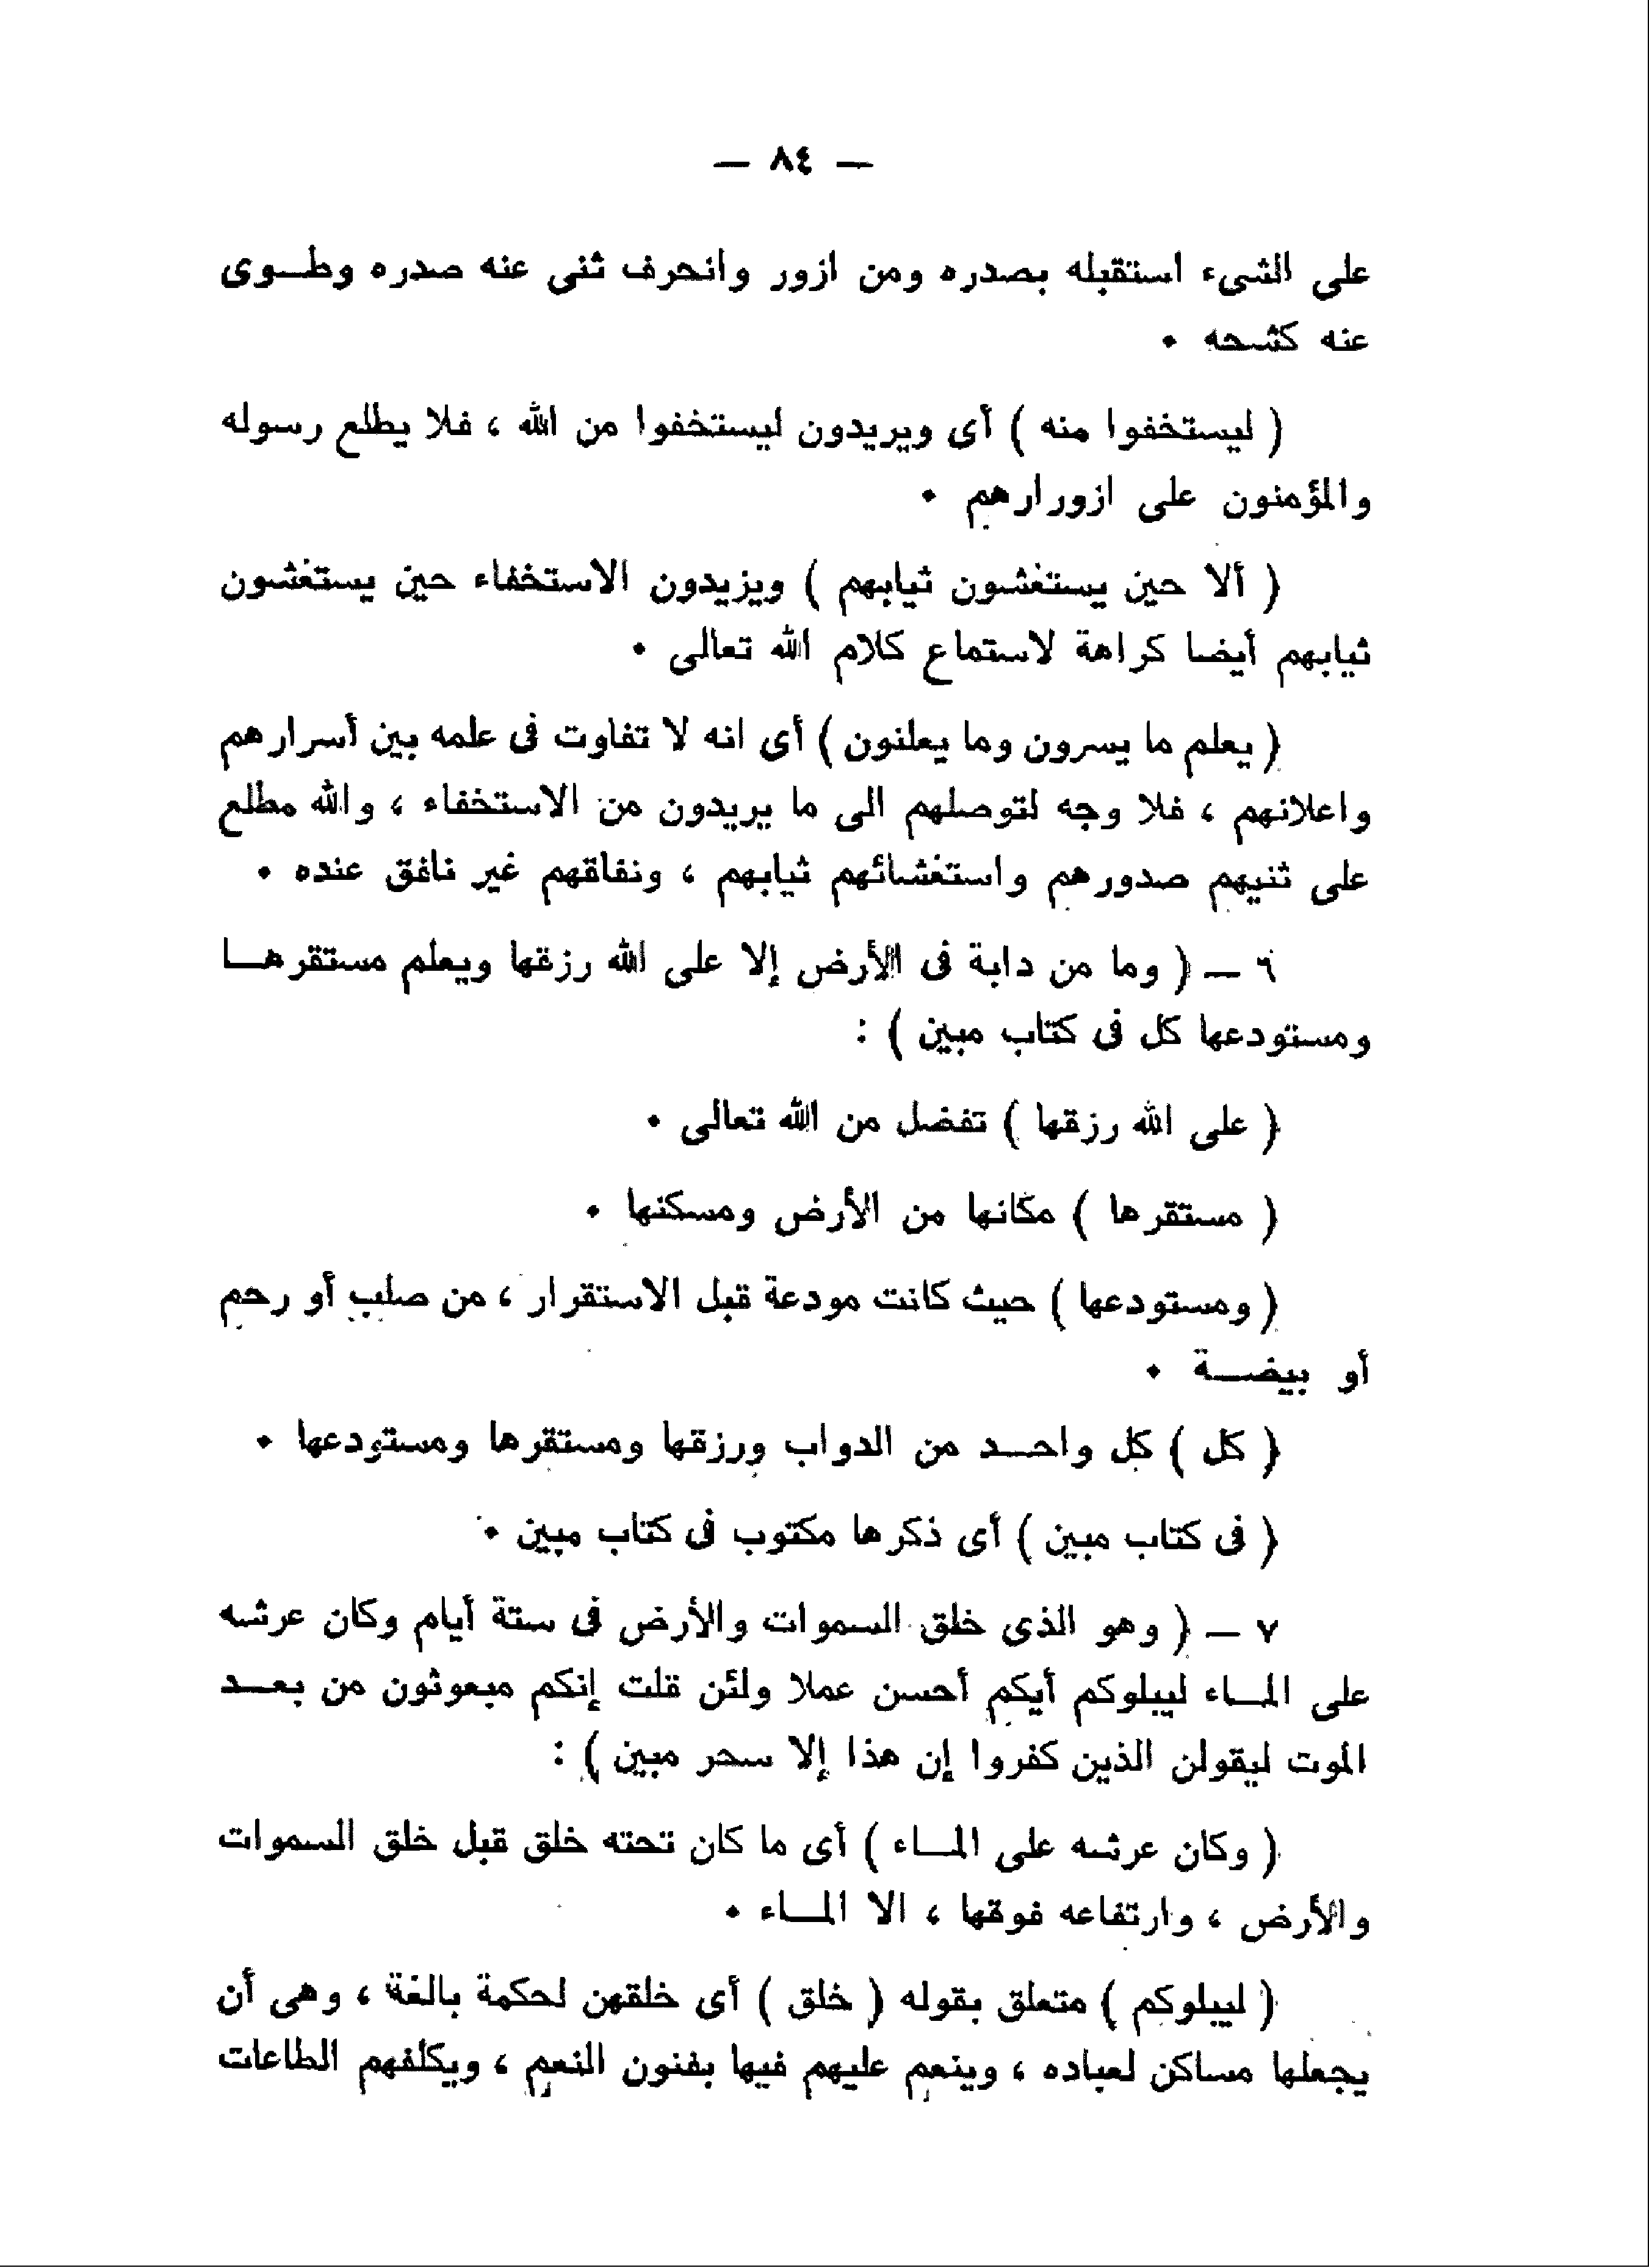 — ٨٤ —
على الشىء استقبله بصدره ومن ازور وانحرف ثنى عنه صدره وطوى
عنه كشحه .
( ليستخفوا منه ) أى ويريدون ليستخفوا من الله ، فلا يطلع رسوله
والمؤمنون على ازورارهم .
( ألا حين يستغشون ثيابهم ) ويزيدون الاستخفاء حين يستغشون
ثيابهم أيضا كراهة لاستماع كلام الله تعالى .
( يعلم ما يسرون وما يعلنون ) أى انه لا تفاوت فى علمه بين أسرارهم
واعلانهم ، فلا وجه لتوصلهم الى ما يريدون من الاستخفاء ، والله مطلع
على ثنيهم صدورهم واستغشائهم ثيابهم ، ونفاقهم غير نافق عنده .
٦ — ( وما من دابة فى الأرض إلا على الله رزقها ويعلم مستقرها
ومستودعها كل فى كتاب مبين ) :
( على الله رزقها ) تفضل من الله تعالى .
( مستقرها ) مكانها من الأرض ومسكنها .
( ومستودعها ) حيث كانت مودعة قبل الاستقرار ، من صلب أو رحم
أو بيضة .
( كل ) كل واحد من الدواب ورزقها ومستقرها ومستودعها .
( فى كتاب مبين ) أى ذكرها مكتوب فى كتاب مبين .
٧ — ( وهو الذى خلق السموات والأرض فى ستة أيام وكان عرشه
على الماء ليبلوكم أيكم أحسن عملا ولئن قلت إنكم مبعوثون من بعد
الموت ليقولن الذين كفروا إن هذا إلا سحر مبين ) :
( وكان عرشه على الماء ) أى ما كان تحته خلق قبل خلق السموات
والأرض ، وارتفاعه فوقها ، الا الماء .
( ليبلوكم ) متعلق بقوله ( خلق ) أى خلقهن لحكمة بالغة ، وهى أن
يجعلها مساكن لعباده ، وينعم عليهم فيها بفنون النعم ، ويكلفهم الطاعات